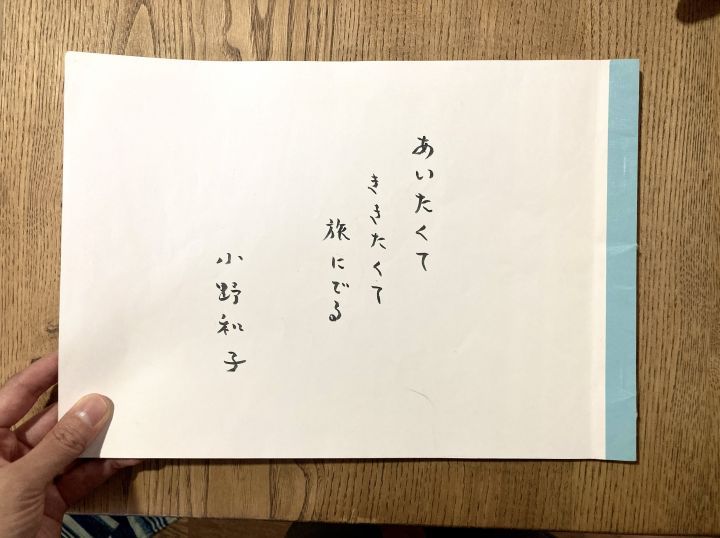 あいたくて
ききたくて
旅にでる
小野和子